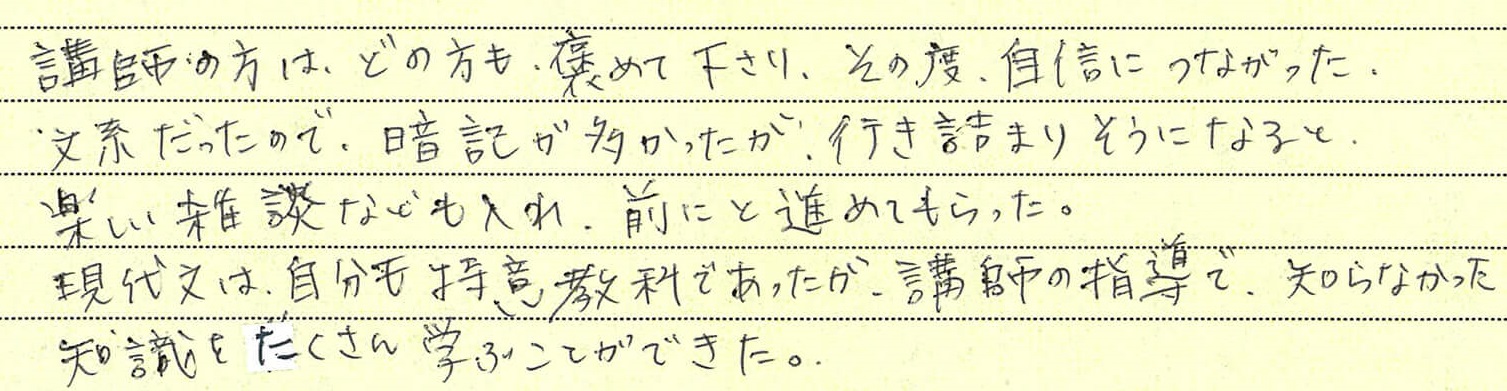 講師の方は、どの方も、褒めて下さり、その度、自信につながった。
文系だったので、暗記が多かったが、行き詰まりそうになると、
楽しい雑談なども入れ、前にと進めてもらった。
現代文は、自分も得意教科であったが、講師の指導で、知らなかった
知識をたくさん学ぶことができた。